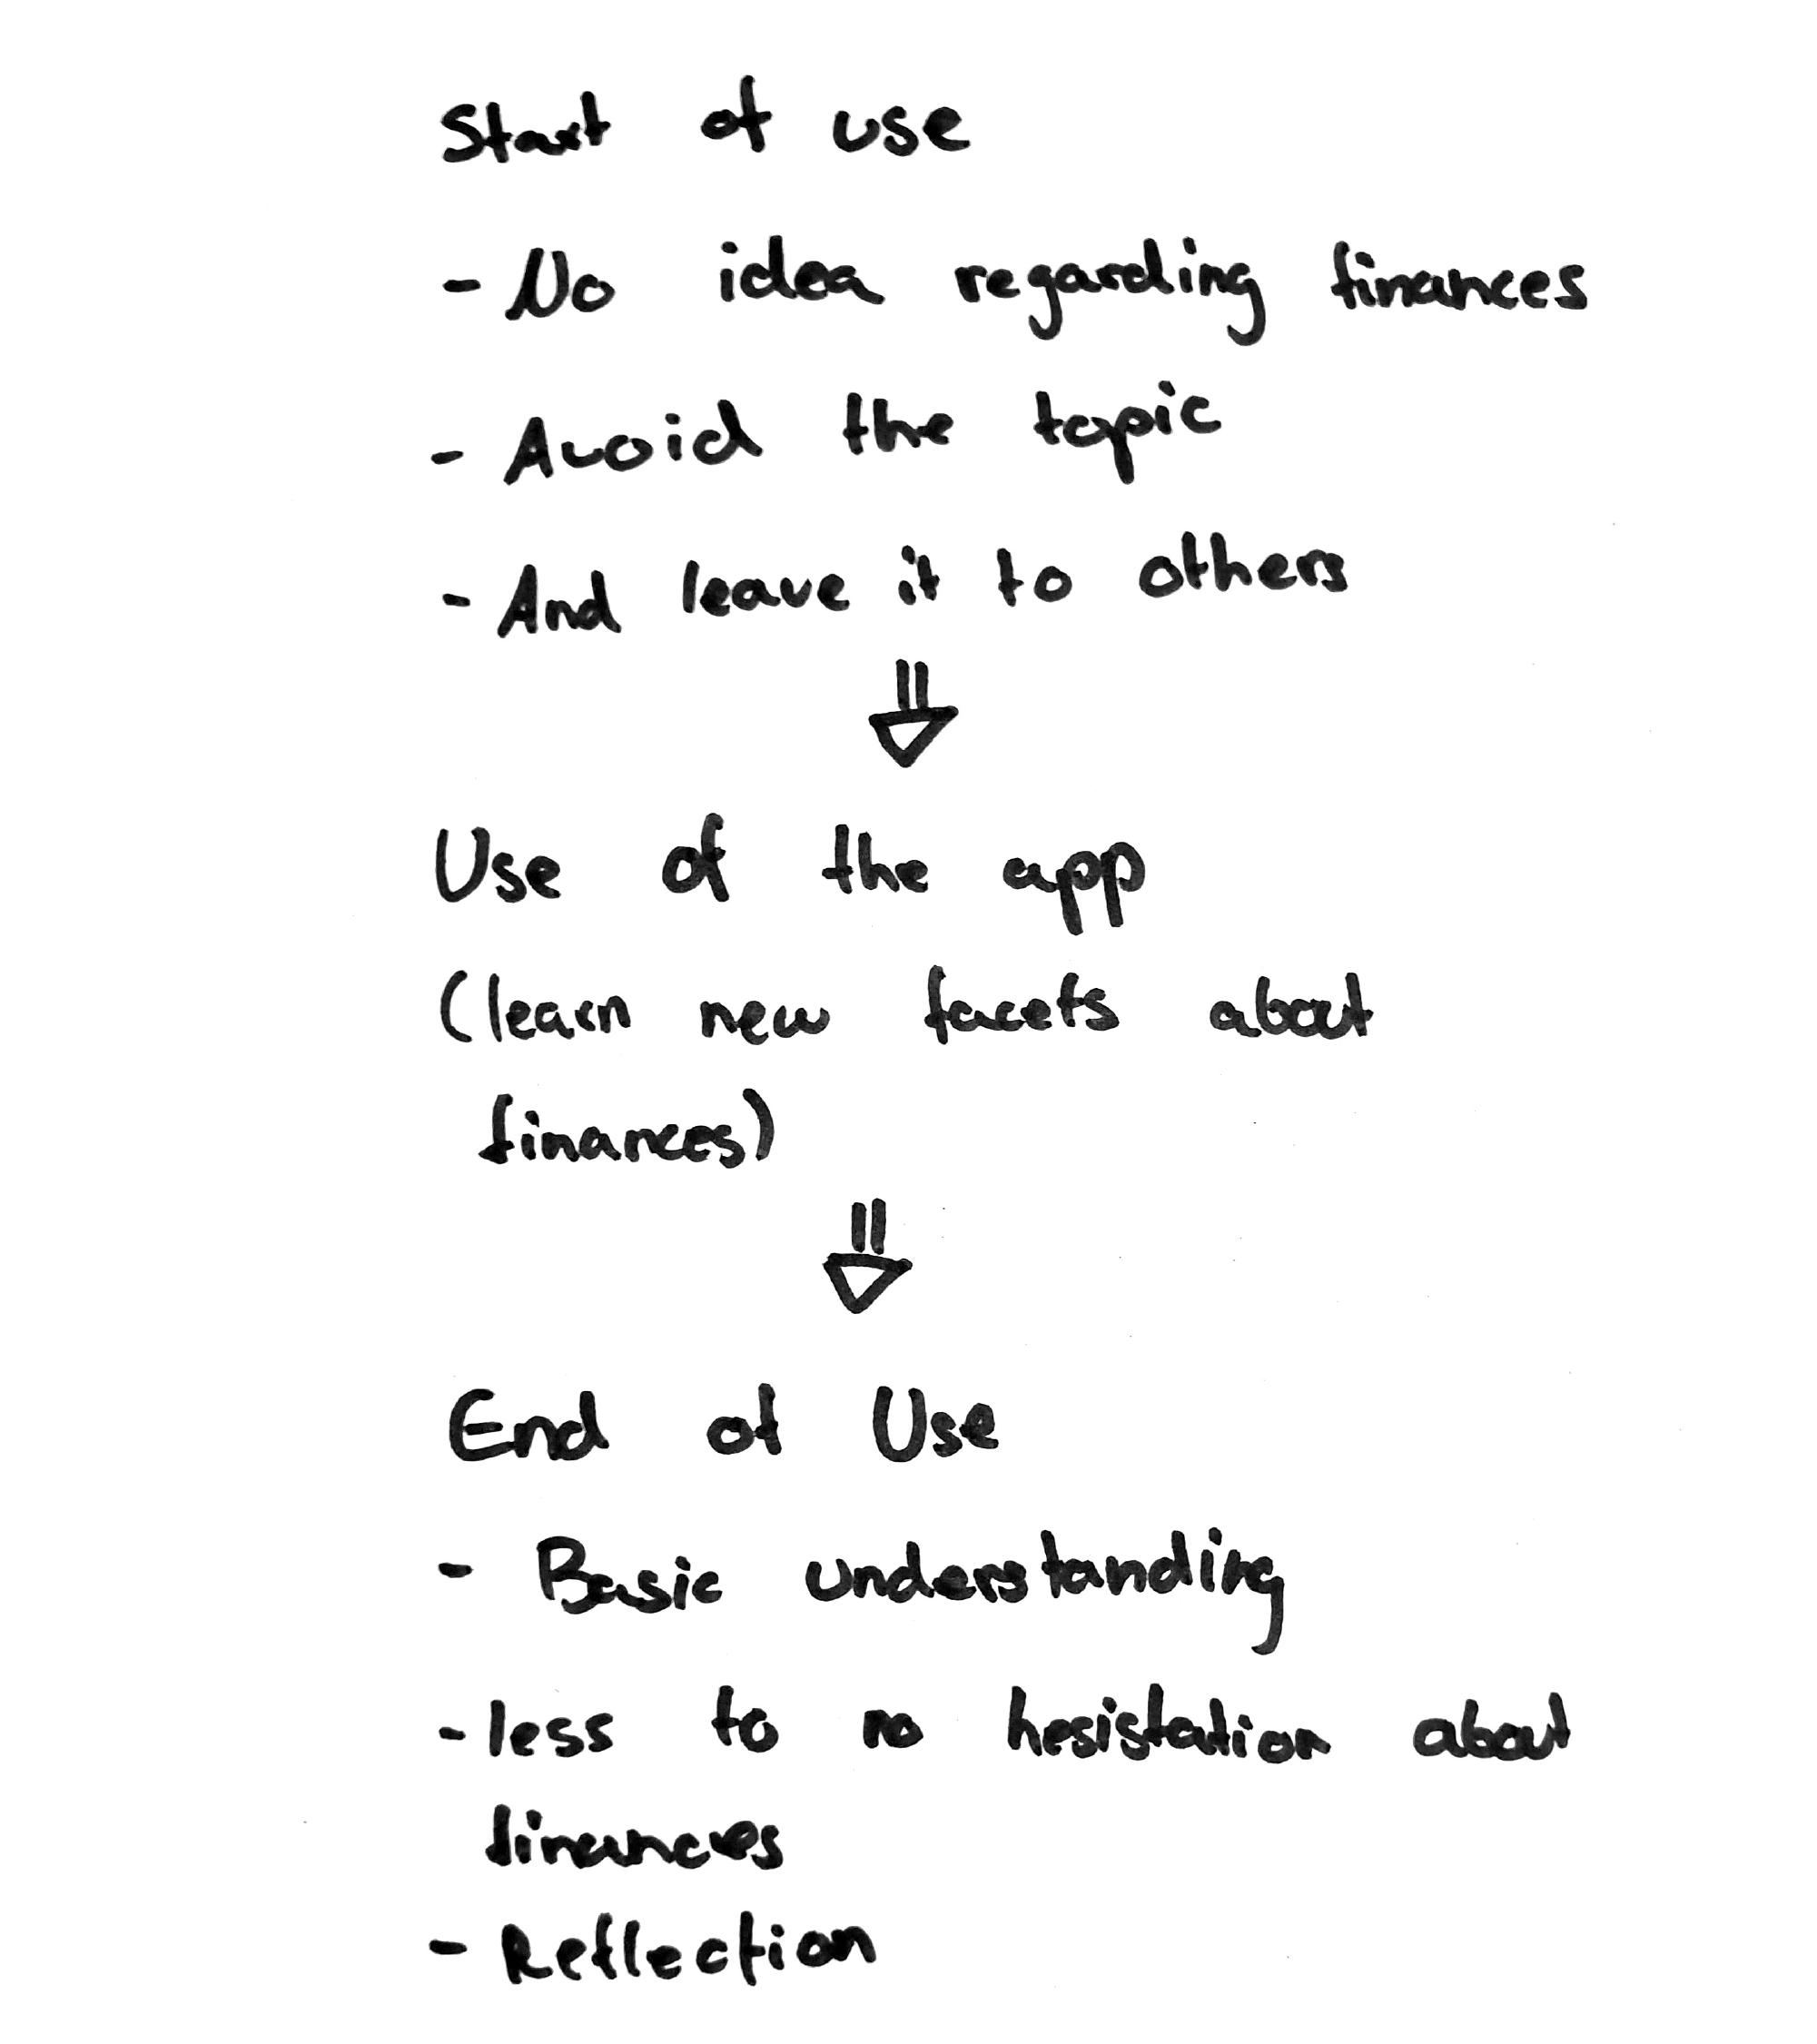 Start of use
- No idea regarding finances
- Avoid the topic
- And leave it to others
Use of the app
(learn new facets about
finances)
End of Use
- Basic understanding
- less to no hesistation about
finances
- Reflection